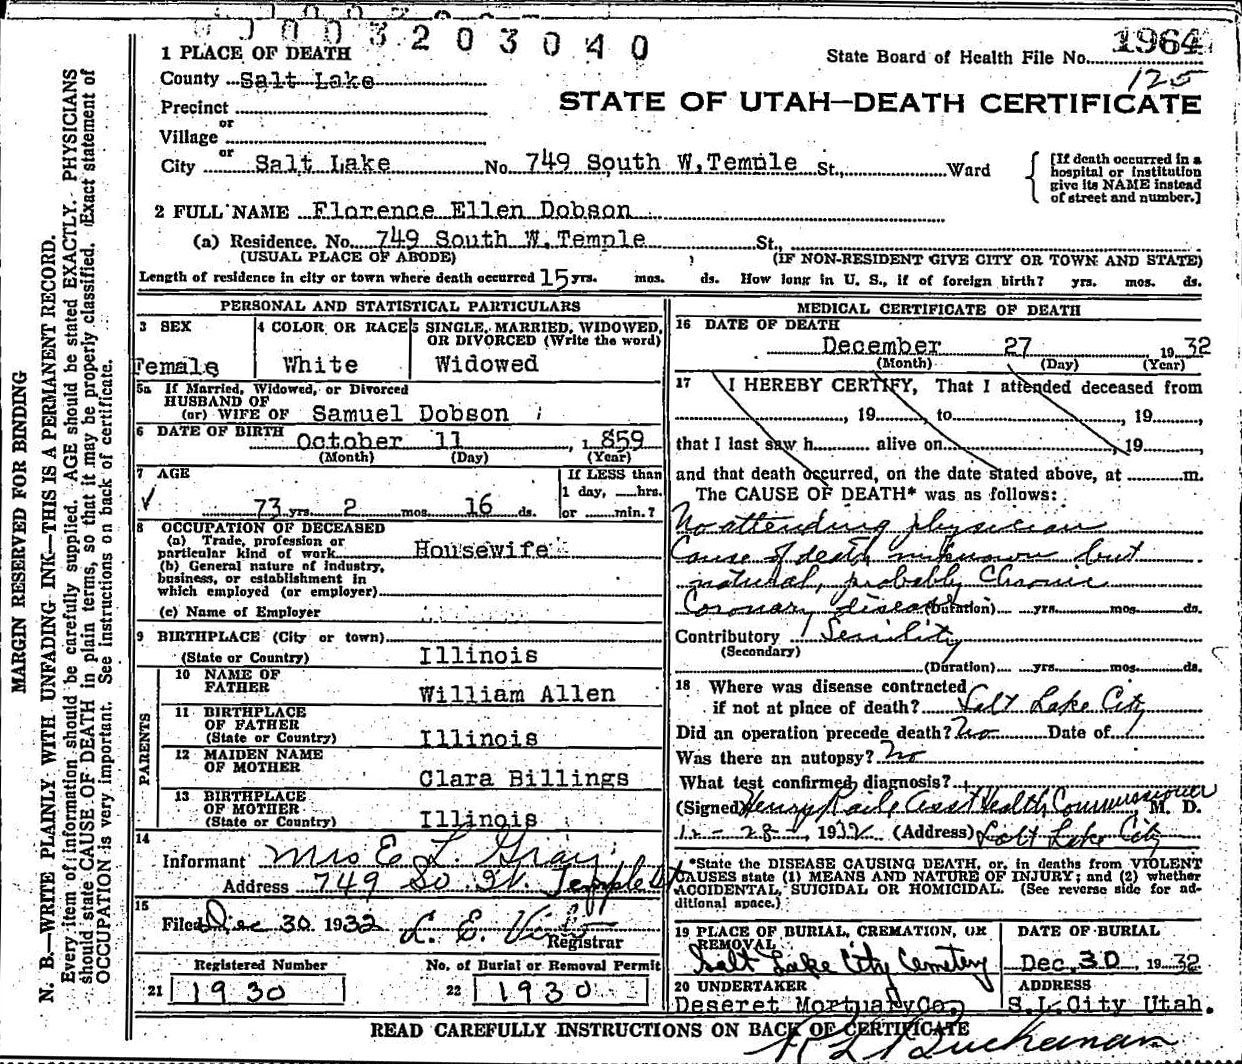 0003203040
1964
State Board of Health File No.
125
1 PLACE OF DEATH
County Salt Lake
STATE OF UTAH—DEATH CERTIFICATE
Precinct
or
Village
or
City Salt Lake No. 749 South W.Temple St., Ward
[If death occurred in a hospital or institution give its NAME instead of street and number.]
2 FULL NAME Florence Ellen Dobson
(a) Residence. No. 749 South W.Temple St.,
(USUAL PLACE OF ABODE) (IF NON-RESIDENT GIVE CITY OR TOWN AND STATE)
Length of residence in city or town where death occurred 15 yrs. mos. ds. How long in U. S., if of foreign birth? yrs. mos. ds.
PERSONAL AND STATISTICAL PARTICULARS
3 SEX
Female
4 COLOR OR RACE
White
5 SINGLE, MARRIED, WIDOWED, OR DIVORCED (Write the word)
Widowed
5a If Married, Widowed, or Divorced
HUSBAND OF
(or) WIFE OF Samuel Dobson
6 DATE OF BIRTH October 11, 1859
(Month) (Day) (Year)
7 AGE
73 yrs. 2 mos. 16 ds.
If LESS than
1 day, hrs.
or min.?
8 OCCUPATION OF DECEASED
(a) Trade, profession or
particular kind of work Housewife
(b) General nature of industry,
business, or establishment in
which employed (or employer)
(c) Name of Employer
9 BIRTHPLACE (City or town)
(State or Country) Illinois
PARENTS
10 NAME OF
FATHER William Allen
11 BIRTHPLACE
OF FATHER
(State or Country) Illinois
12 MAIDEN NAME
OF MOTHER Clara Billings
13 BIRTHPLACE
OF MOTHER
(State or Country) Illinois
14
Informant Mrs E. L. Gray
Address 749 So. W. Temple St
15
Filed Dec 30 1932 L. E.
Registrar
Registered Number
21 1930
No. of Burial or Removal Permit
22 1930
MEDICAL CERTIFICATE OF DEATH
16 DATE OF DEATH
December 27 1932
(Month) (Day) (Year)
17 I HEREBY CERTIFY, That I attended deceased from
, 19 to , 19 ,
that I last saw h alive on , 19 ,
and that death occurred, on the date stated above, at m.
The CAUSE OF DEATH* was as follows:
No attending physician
Cause of death unknown but
natural, probably Chronic
Coronary disease (Duration) yrs. mos. ds.
Contributory Senility
(Secondary)
(Duration) yrs. mos. ds.
18 Where was disease contracted
if not at place of death? Salt Lake City
Did an operation precede death? No Date of
Was there an autopsy? No
What test confirmed diagnosis?
(Signed) Henry Asst Health Commissioner M. D.
12-28-, 1932 (Address) Salt Lake City
*State the DISEASE CAUSING DEATH, or, in deaths from VIOLENT
CAUSES state (1) MEANS AND NATURE OF INJURY; and (2) whether
ACCIDENTAL, SUICIDAL OR HOMICIDAL. (See reverse side for additional space.)
19 PLACE OF BURIAL, CREMATION, OR REMOVAL
Salt Lake City Cemetery
DATE OF BURIAL
Dec. 30, 1932
20 UNDERTAKER
Deseret Mortuary Co.
ADDRESS
S.L.City Utah.
READ CAREFULLY INSTRUCTIONS ON BACK OF CERTIFICATE
Buchanan
MARGIN RESERVED FOR BINDING
N. B.—WRITE PLAINLY WITH UNFADING INK—THIS IS A PERMANENT RECORD.
Every item of information should be carefully supplied. AGE should be stated EXACTLY. PHYSICIANS
should state CAUSE OF DEATH in plain terms, so that it may be properly classified. Exact statement of
OCCUPATION is very important. See instructions on back of certificate.